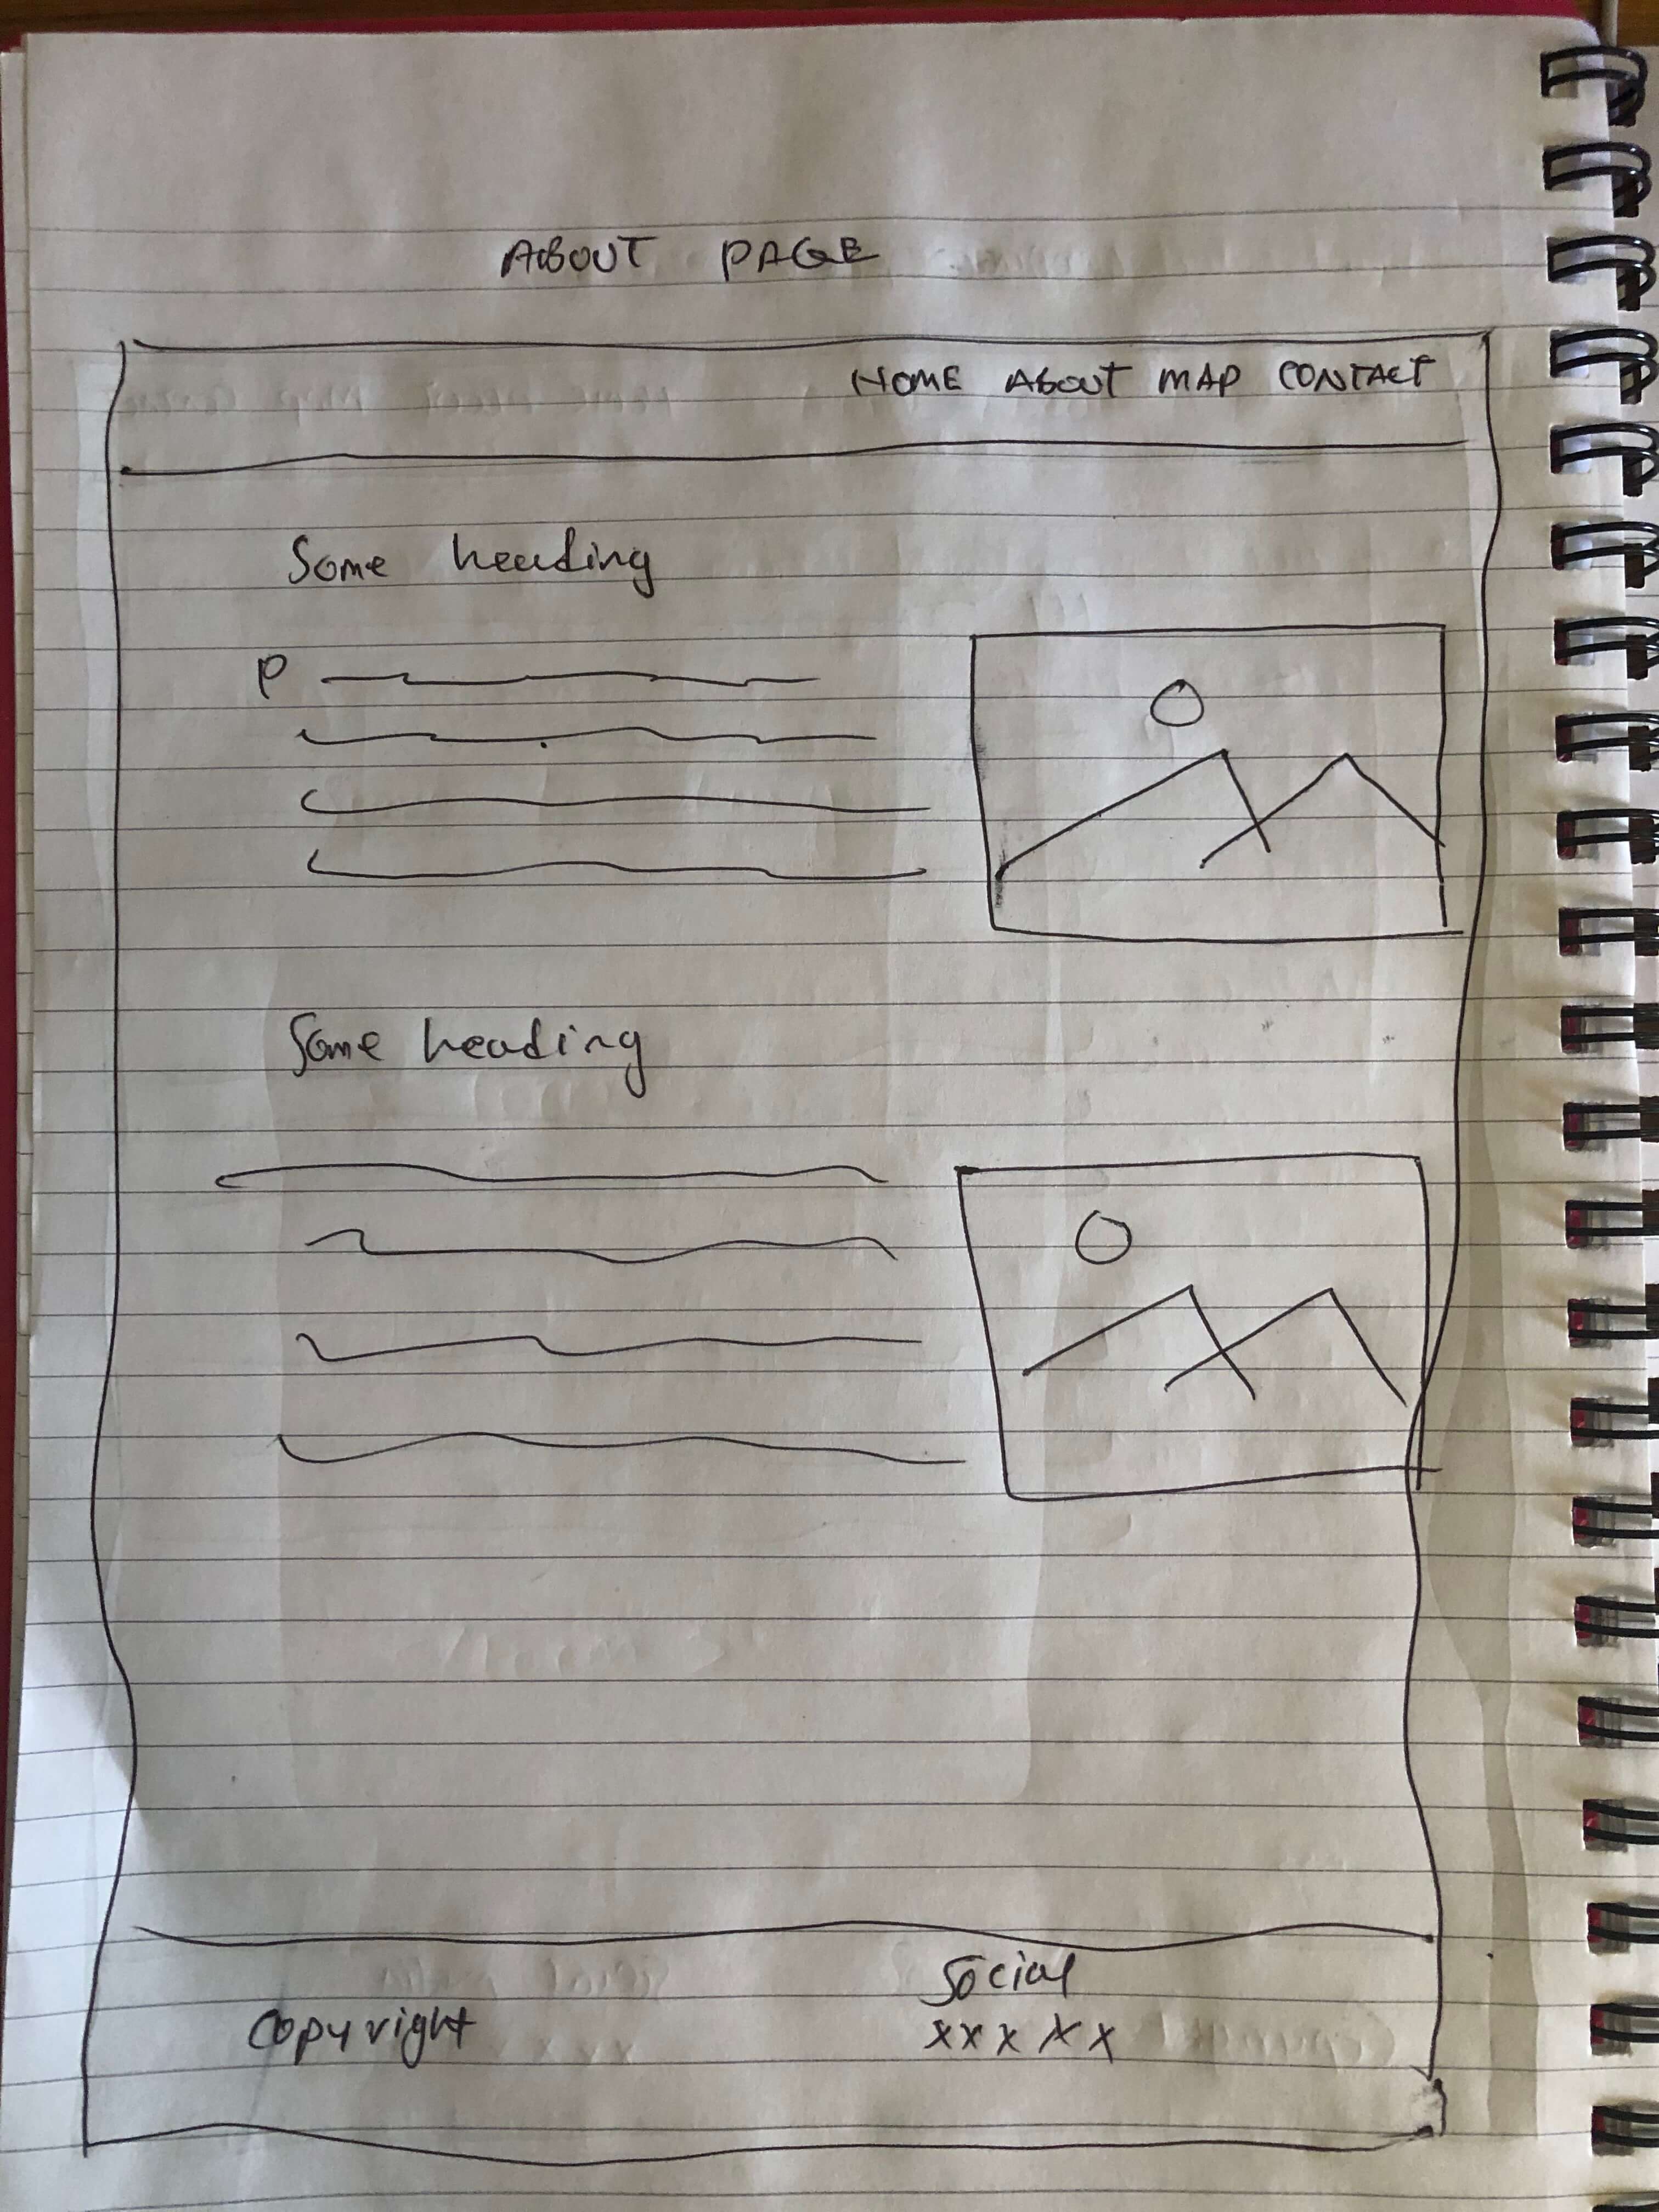 ABOUT PAGE
HOME ABOUT MAP CONTACT
Some heading
P
Some heading
Social
Copyright
xxxxx